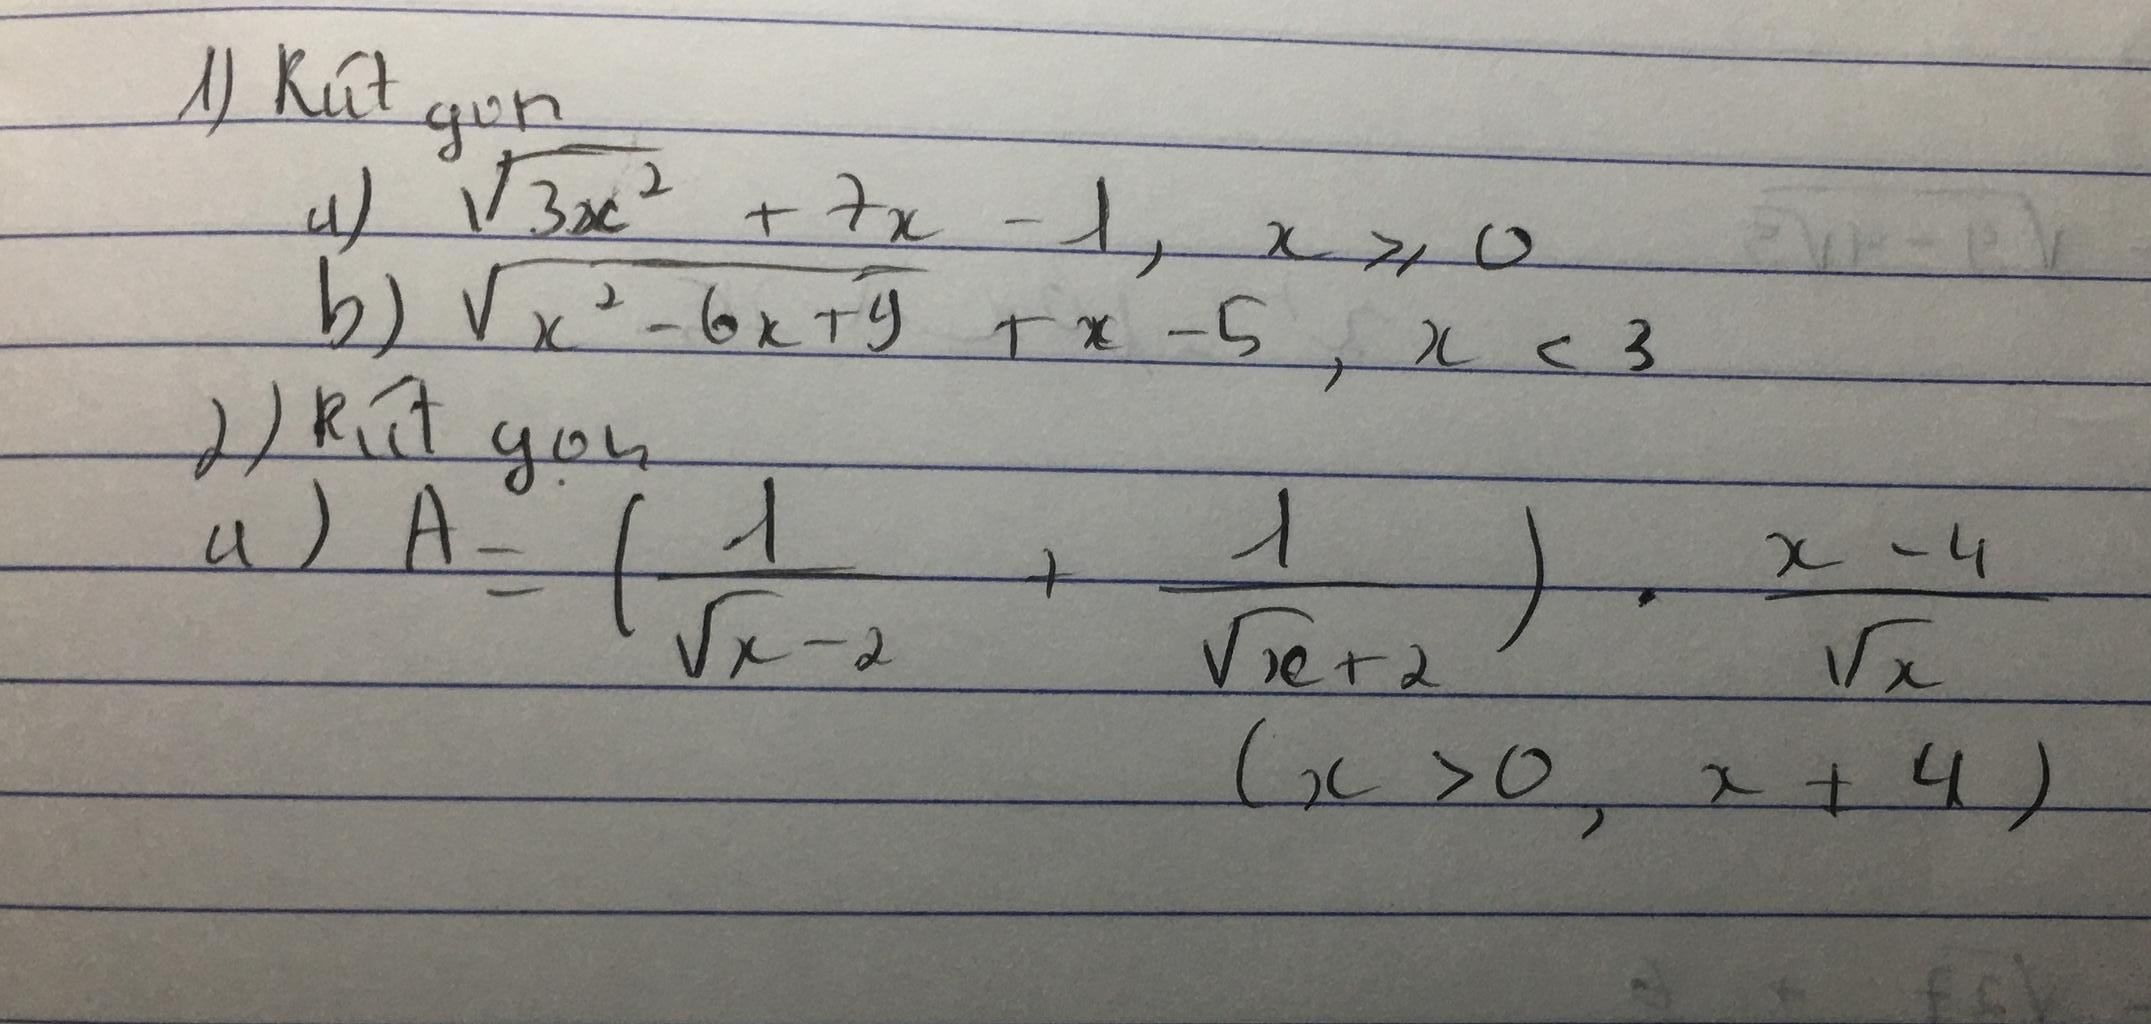 1) Rút gọn
a) √3x² + 7x - 1, x ≥ 0
b) √x² - 6x + 9 + x - 5, x < 3
2) Rút gọn
a) A = ( 1/(√x - 2) + 1/(√x + 2) ) . (x - 4)/√x
(x > 0, x + 4)